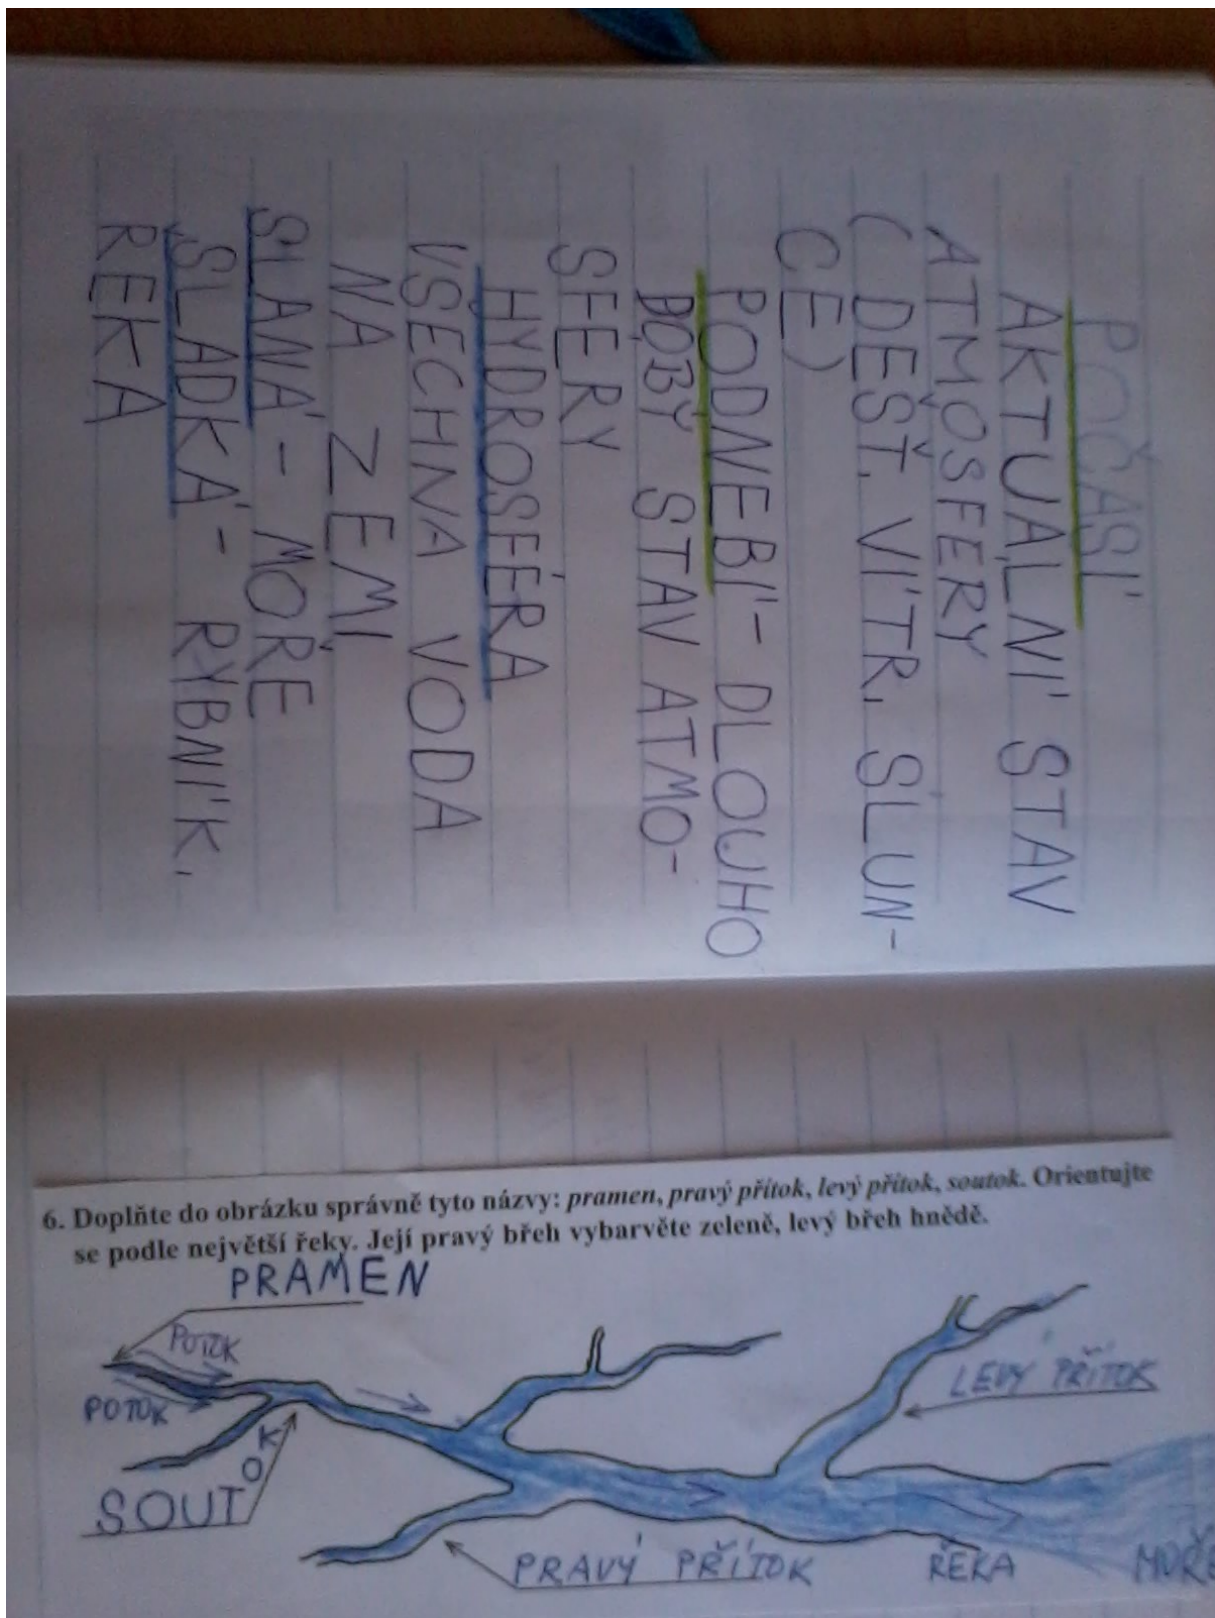 POČASÍ
AKTUÁLNÍ STAV
ATMOSFÉRY
(DÉŠŤ, VÍTR, SLUN-
CE)
PODNEBÍ - DLOUHO
DOBÝ STAV ATMO-
SFÉRY
HYDROSFÉRA
VŠECHNA VODA
NA ZEMI
SLANÁ - MOŘE
SLADKÁ - RYBNÍK,
ŘEKA
6. Doplňte do obrázku správně tyto názvy: pramen, pravý přítok, levý přítok, soutok. Orientujte
se podle největší řeky. Její pravý břeh vybarvěte zeleně, levý břeh hnědě.
PRAMEN
POTOK
POTOK
LEVÝ PŘÍTOK
SOUTOK
PRAVÝ PŘÍTOK
ŘEKA
MOŘE